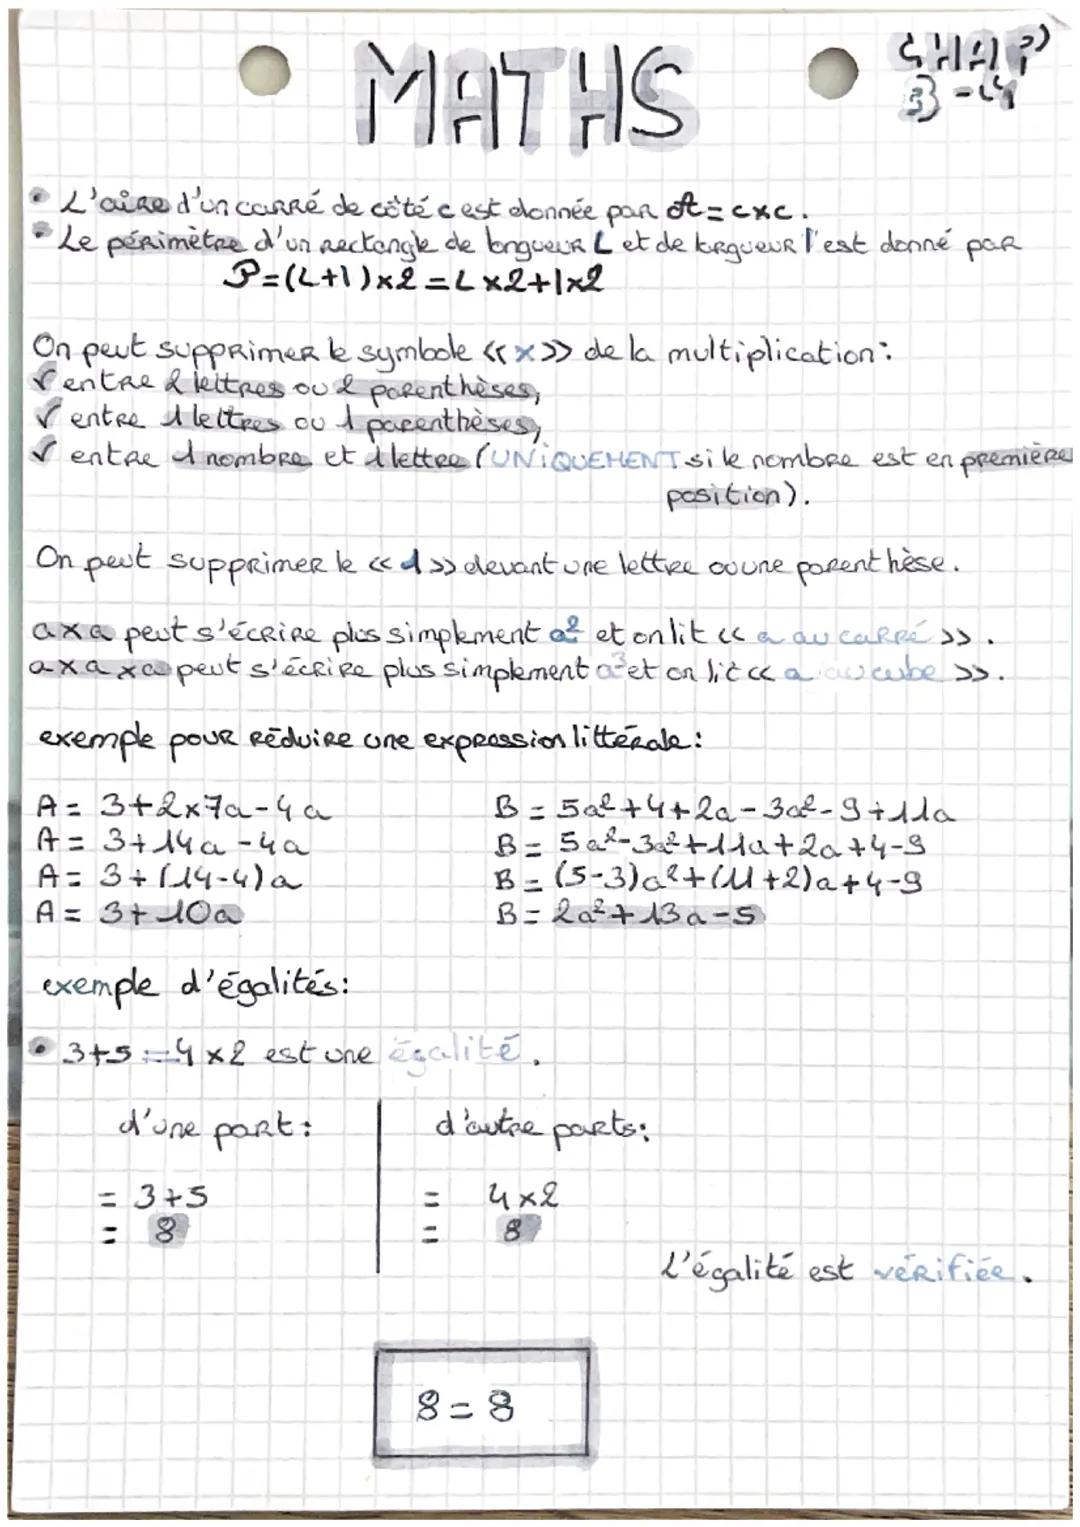 MATHS
CHAP
3-4
• L'aire d'un carré de côté c est donnée par A = c×c.
• Le périmètre d'un rectangle de longueur L et de largueur l'est donné par
P=(L+l)×2=L×2+l×2
On peut supprimer le symbole «×» de la multiplication:
✓ entre 2 lettres ou 2 parenthèses,
✓ entre 1 lettres ou 1 parenthèses,
✓ entre 1 nombre et 1 lettre (UNIQUEMENT si le nombre est en première
position).
On peut supprimer le «1» devant une lettre ou une parenthèse.
a×a peut s'écrire plus simplement a² et on lit « a au carré ».
a×a×a peut s'écrire plus simplement a³ et on lit « a au cube ».
exemple pour réduire une expression littérale:
A = 3+2×7a-4a
A = 3+14a-4a
A = 3+(14-4)a
A = 3+10a
B = 5a²+4+2a-3a²-9+11a
B = 5a²-3a²+11a+2a+4-9
B = (5-3)a²+(11+2)a+4-9
B = 2a²+13a-5
exemple d'égalités:
• 3+5=4×2 est une égalité.
d'une part:
= 3+5
= 8
d'autre parts:
= 4×2
= 8
L'égalité est vérifiée.
8=8